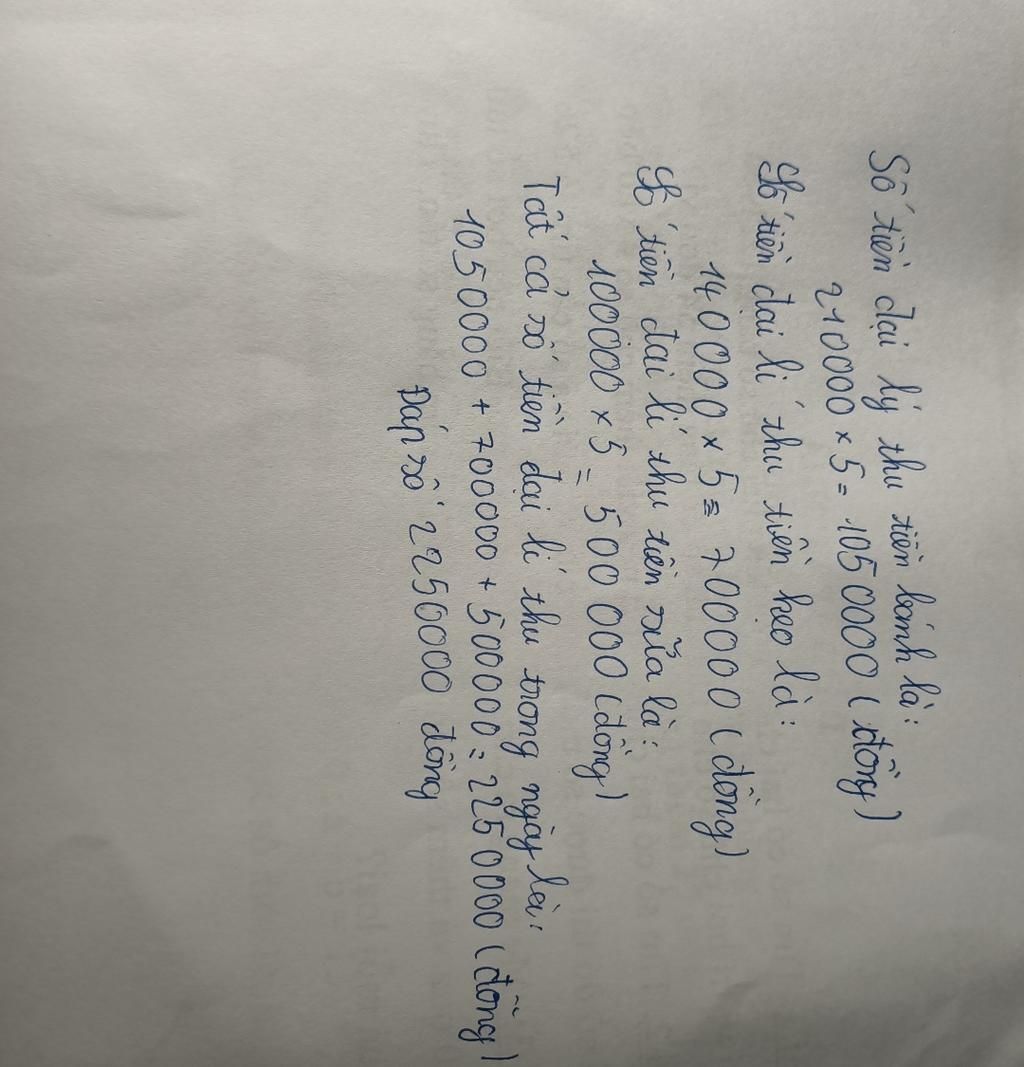 Số tiền đại lý thu tiền bánh là:
210000 x 5 = 1050000 (đồng)
Số tiền đại lí thu tiền kẹo là:
140000 x 5 = 700000 (đồng)
Số tiền đại lí thu tiền sữa là:
100000 x 5 = 500 000 (đồng)
Tất cả số tiền đại lí thu trong ngày là:
1050000 + 700000 + 500000 = 2250000 (đồng)
Đáp số 2250000 đồng